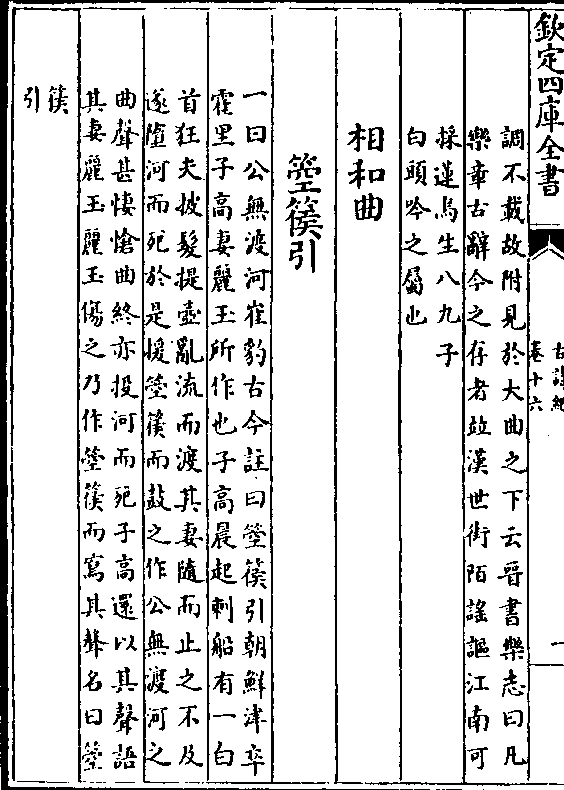 欽定四庫全書
古詩紀
卷十六
一
調不載故附見於大曲之下云晉書樂志曰凡
樂章古辭今之存者竝漢世街陌謠謳江南可
採蓮烏生八九子
白頭吟之屬也
相和曲
箜篌引
一曰公無渡河崔豹古今註曰箜篌引朝鮮津卒
霍里子高妻麗玉所作也子高晨起刺船有一白
首狂夫披髮提壺亂流而渡其妻隨而止之不及
遂墮河而死於是援箜篌而鼓之作公無渡河之
曲聲甚悽愴曲終亦投河而死子高還以其聲語
其妻麗玉麗玉傷之乃作箜篌而寫其聲名曰箜
篌
引